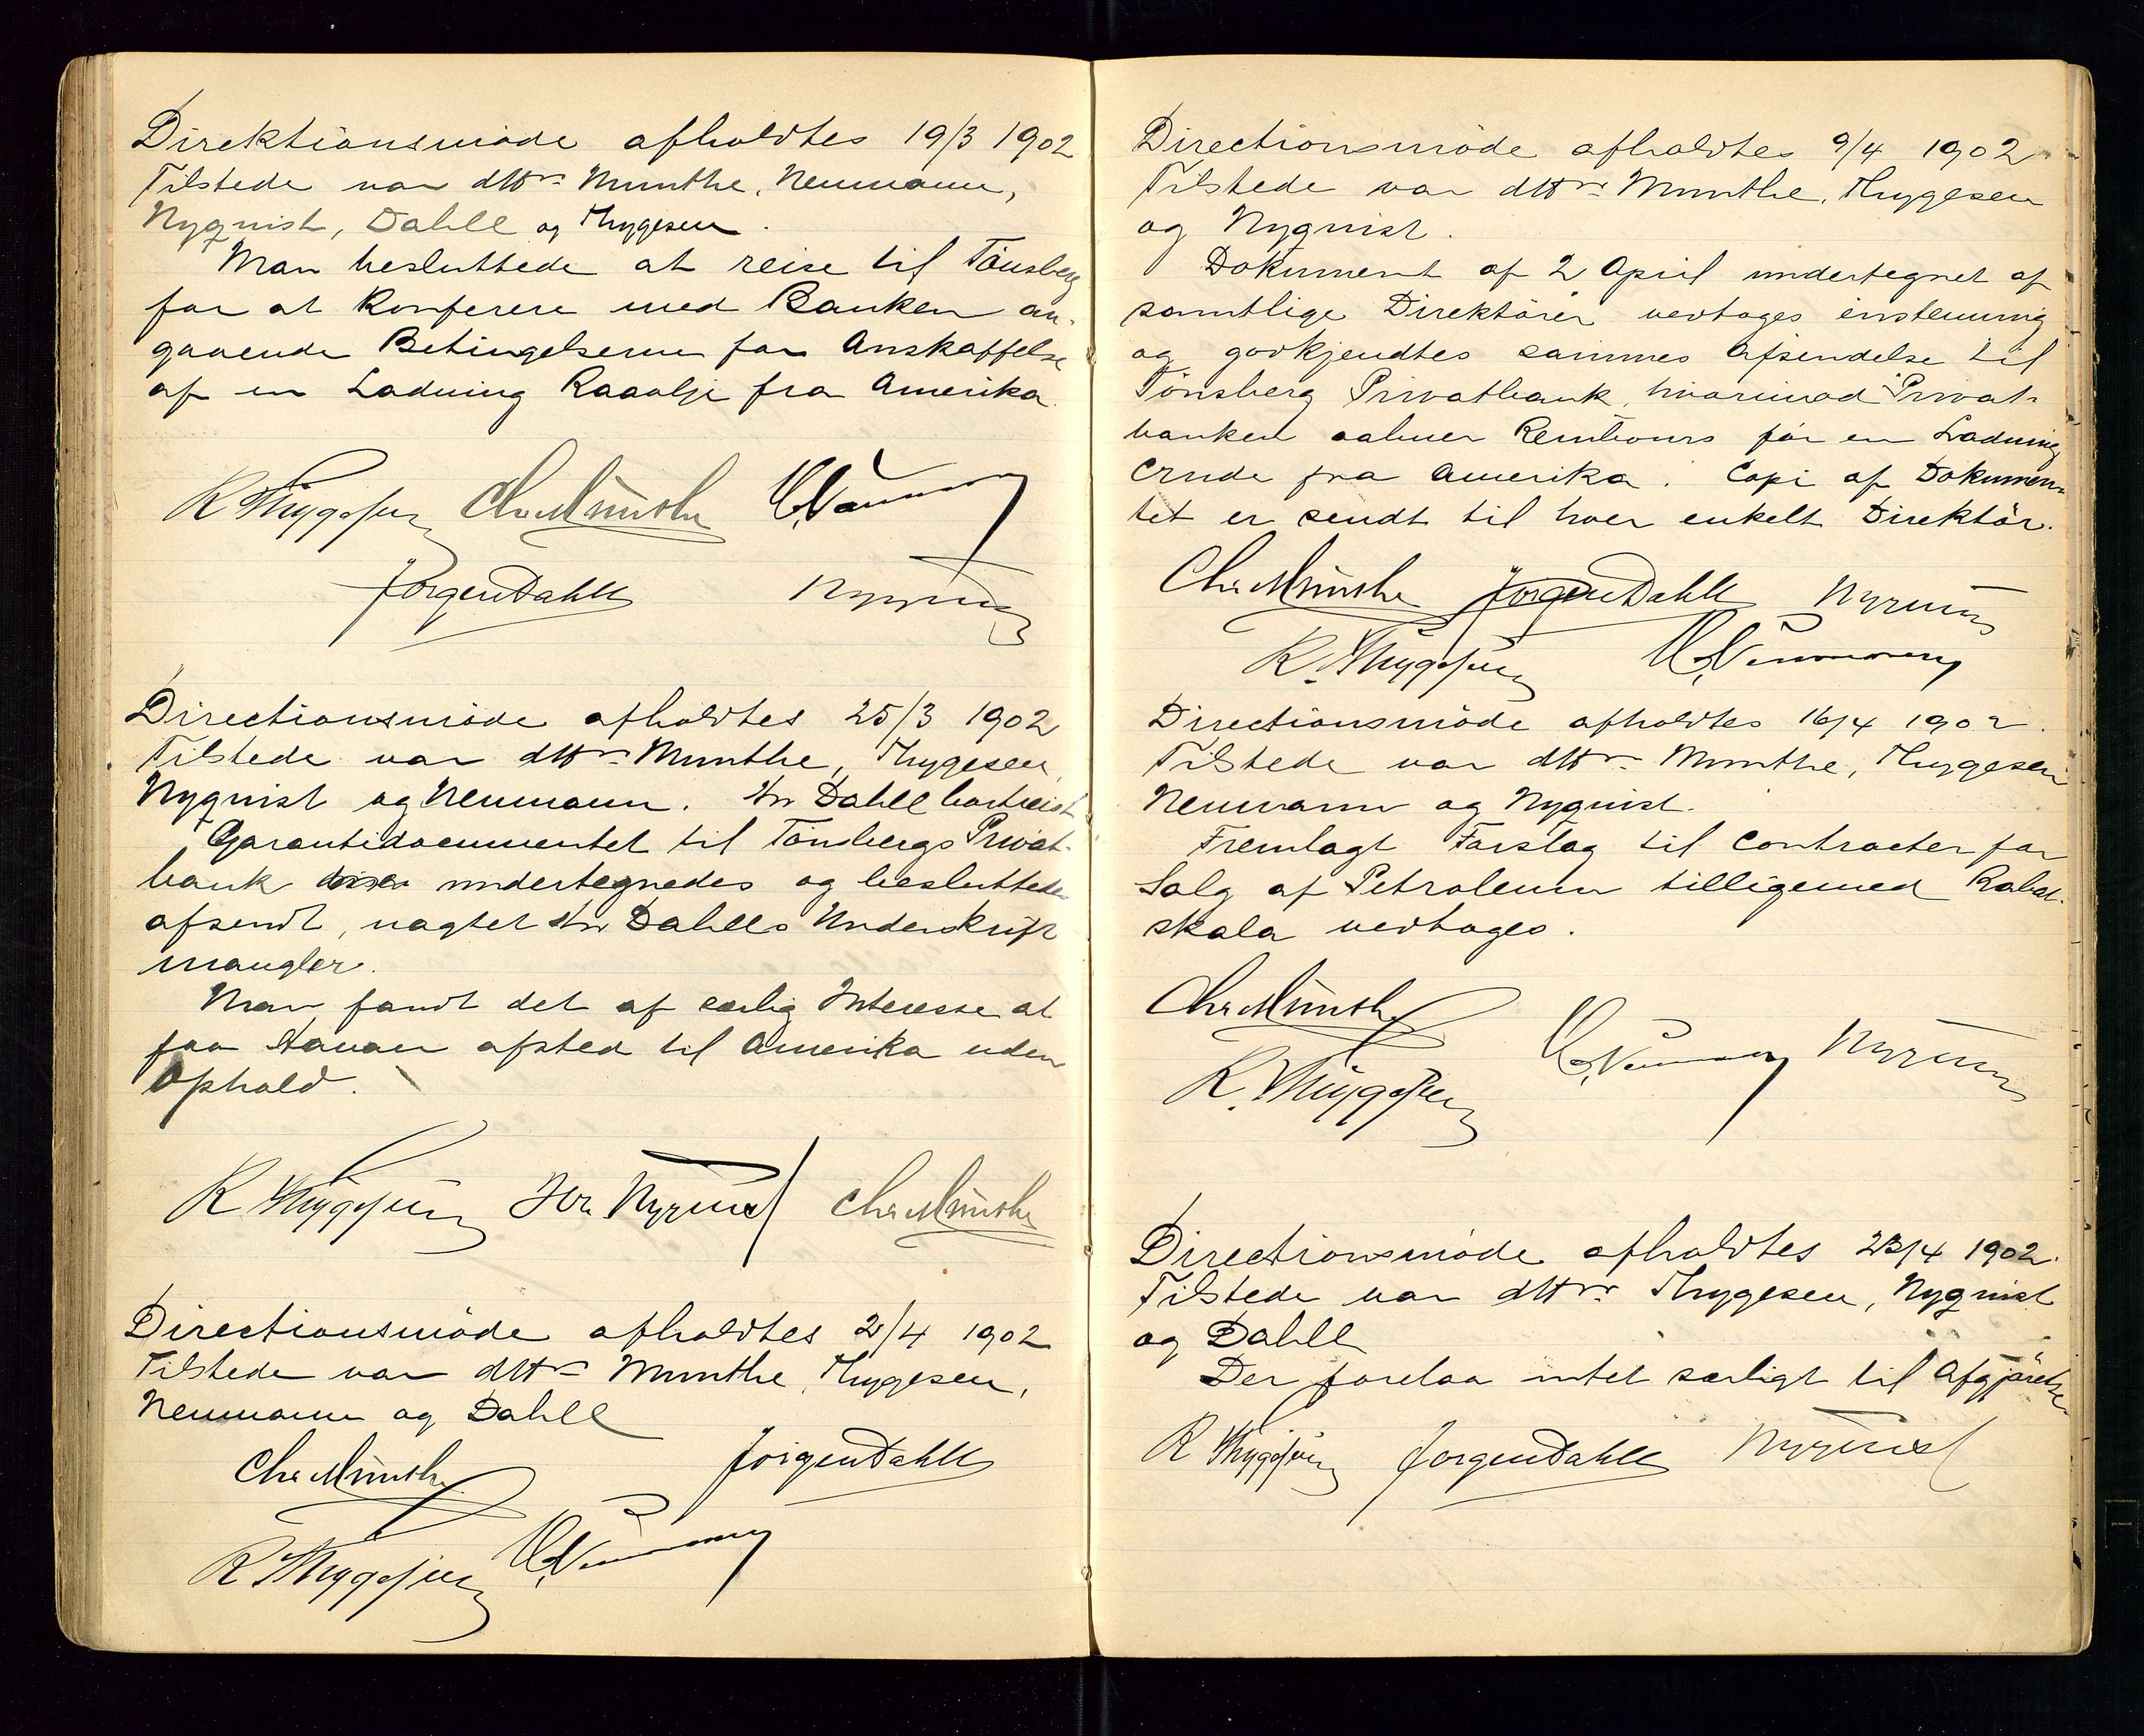 Direktionsmöde afholdtes 19/3 1902
Tilstede var dHrr Munthe, Neumann,
Nyquist, Dahll og Thygesen.
Man besluttede at reise til Tönsberg
for at Konferere med Banken an-
gaaende Betingelserne for Anskaffelse
af en Ladning Raaolje fra Amerika.
R Thygesen Chr Munthe Neumann
Jörgen Dahll Nyquist
Directionsmöde afholdtes 25/3 1902
Tilstede var dHrr Munthe, Thygesen,
Nyquist og Neumann. Hr Dahll bortreist
Garantidocumentet til Tönsbergs Privat-
bank undertegnedes og besluttedes
afsendt, uagtet Hr Dahlls Underskrift
mangler.
Man fandt det af særlig Interesse at
faa afsted til Amerika uden
Ophold.
R Thygesen Nyquist Chr Munthe
Directionsmöde afholdtes 2/4 1902
Tilstede var dHrr Munthe, Thygesen,
Neumann og Dahll
Chr Munthe Jörgen Dahll
R Thygesen Neumann
Directionsmöde afholdtes 9/4 1902
Tilstede var dHrr Munthe, Thygesen
og Nyquist.
Dokument af 2 April undertegnet af
samtlige Direktörer vedtages enstemmig
og godkjendtes sammes Afsendelse til
Tönsberg Privatbank, hvorimod Privat-
banken aabner Rembours för en Ladning
Crude fra Amerika. Copi af Dokumen-
tet er sendt til hver enkelt Direktör.
Chr Munthe Jörgen Dahll Nyquist
R. Thygesen Neumann
Directionsmöde afholdtes 16/4 1902.
Tilstede var dHrr Munthe, Thygesen
Neumann og Nyquist.
Fremlagt Forslag til Contracter for
Salg af Petroleum tilligemed Rabat-
skala vedtages.
Chr Munthe
R. Thygesen Neumann Nyquist
Directionsmöde afholdtes 23/4 1902.
Tilstede var dHrr Thygesen, Nyquist
og Dahll
Der forelaa intet særligt til Afgjörelse.
R Thygesen Jörgen Dahll Nyquist